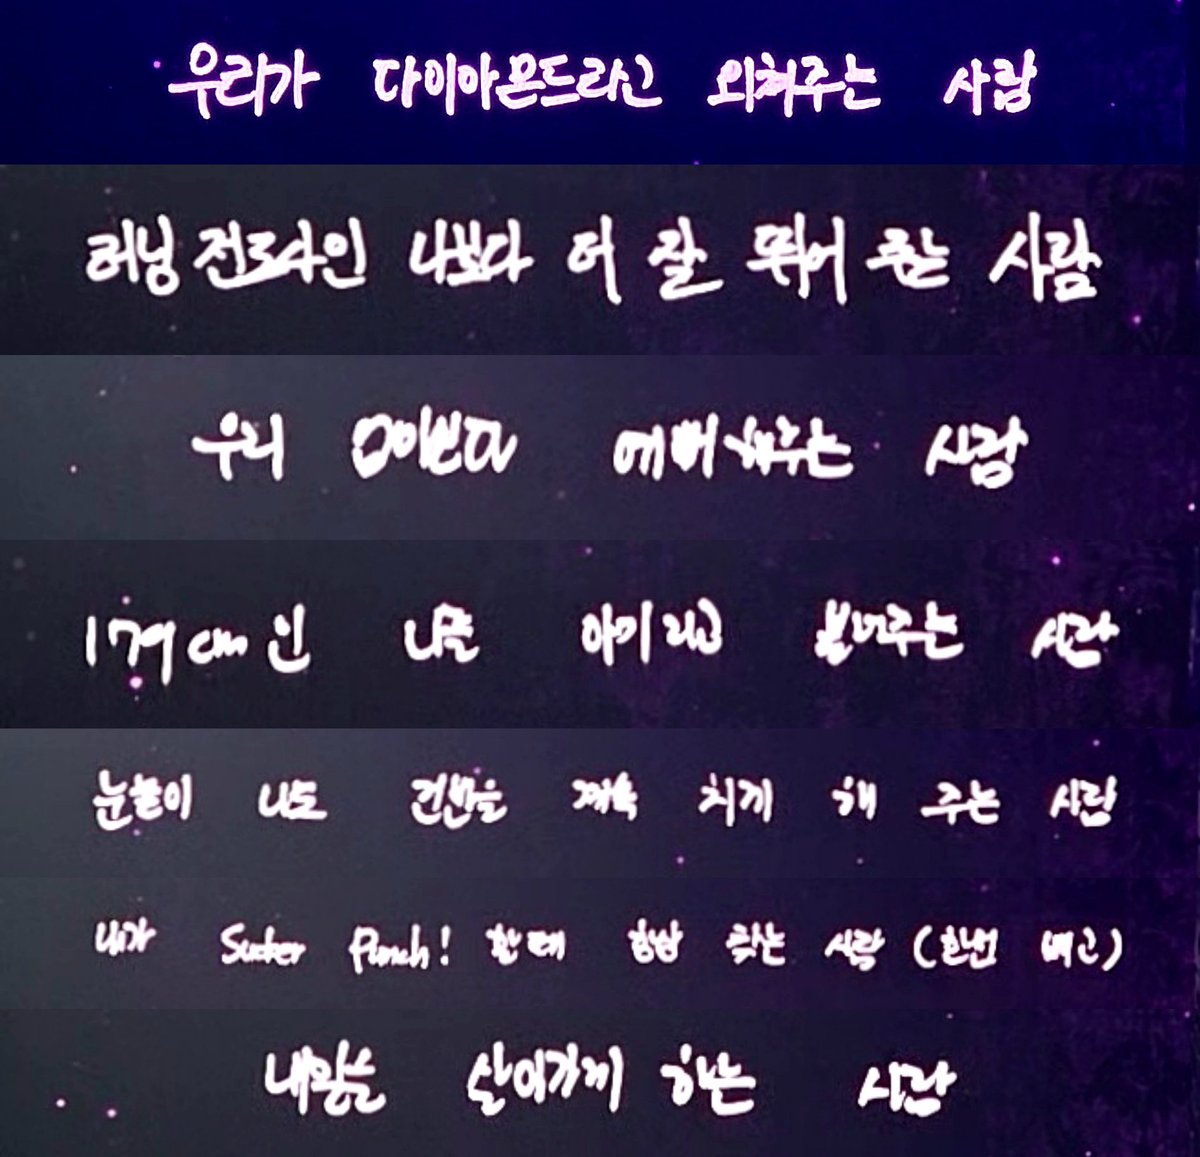 우리가 다이아몬드라고 외쳐주는 사람
러닝 전도사인 나보다 더 잘 뛰어 주는 사람
우리 예뻐해주는 사람
179cm인 나를 아기라고 불러주는 사람
눈놀이 나도 건반을 계속 치게 해 주는 사람
내가 Sucker Punch! 한테 항상 찾는 사람 (한번 빼고)
내일을 살아가게 하는 사람